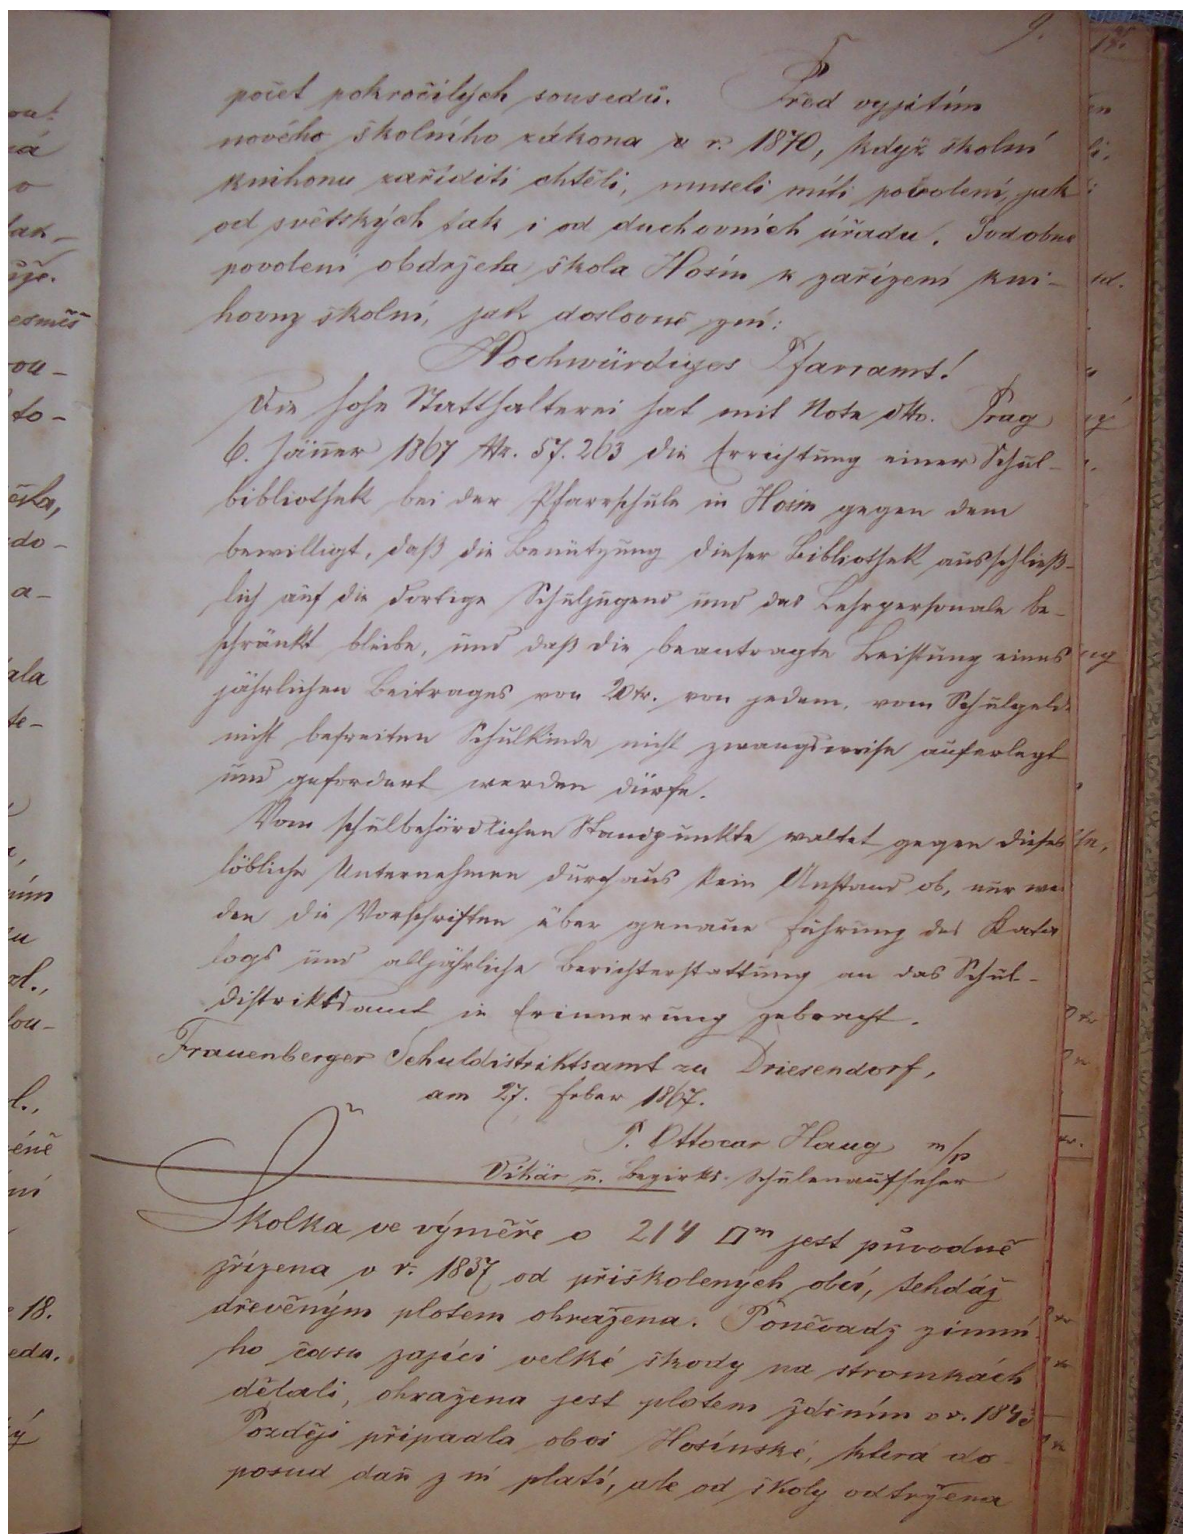 9.
počet pokročilých sousedů. Před vyjitím
nového školního zákona v r. 1870, když školní
knihonu zaříditi chtěli, museli míti povolení, jak
od světských tak i od duchovních úřadu. Podobne
povolení obdržela škola Hosín k zařízení kni-
hovny školní, jak doslovně zní:
Hochwürdiges Pfarramt!
Die hohe Statthalterei hat mit Note dto. Prag
6. Jänner 1867 Nr. 57.263 die Errichtung einer Schul-
bibliothek bei der Pfarrschule in Hosin gegen dem
bewilligt, daß die Benützung dieser Bibliothek ausschließ-
lich auf die dortige Schuljugend und das Lehrpersonale be-
schränkt bleibe, und daß die beantragte Leistung eines
jährlichen Beitrages von 20 kr. von jedem, vom Schulgelde
nicht befreiten Schulkinde nicht zwangsweise auferlegt
und gefordert werden dürfe.
Vom schulbehördlichen Standpunkte waltet gegen dieses
löbliche Unternehmen durchaus kein Anstand ob, nur wer
den die Vorschriften über genaue Führung des Kata
logs und alljährliche Berichterstattung an das Schul-
distriktsamt in Erinnerung gebracht.
Frauenberger Schuldistriktsamt zu Driesendorf,
am 27. Feber 1867.
P. Ottocar Haug m/p
Vikär u. Bezirks-Schulenaufseher
Školka ve výměře o 214 □m jest původně
zřízena v r. 1837 od přiškolených obcí, tehdáž
dřevěným plotem ohražena. Poněvadž zimní
ho času zajíci velké škody na stromkách
dělali, ohražena jest plotem zděním v r.
Později připadla obci Hosínské, která do-
posud daň z ní platí, ale od školy odtržena